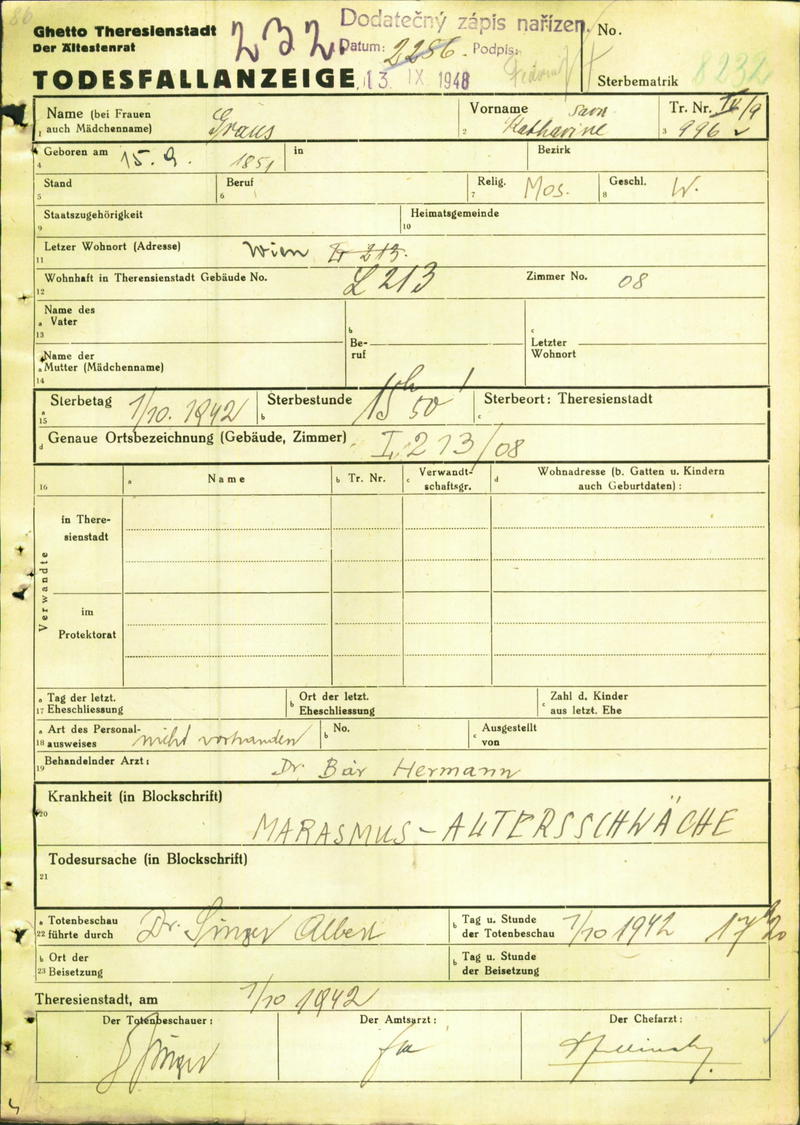 Ghetto Theresienstadt
Der Ältestenrat
TODESFALLANZEIGE
232
Dodatečný zápis nařízen.
Datum: 2286 Podpis:
13 IX 1948
No.
Sterbematrik 8232
Name (bei Frauen
1 auch Mädchenname) Graus
Vorname Sara
2 Katharine
Tr. Nr. IV/9
3 996
4 Geboren am 15. 9. 1851 in Bezirk
5 Stand 6 Beruf 7 Relig. Mos. 8 Geschl. W.
9 Staatszugehörigkeit 10 Heimatsgemeinde
11 Letzer Wohnort (Adresse) Wien L 213.
12 Wohnhaft in Theresienstadt Gebäude No. L 213 Zimmer No. 08
Name des
a Vater
13
b Be-
ruf
c Letzter
Wohnort
Name der
a Mutter (Mädchenname)
14
a 15 Sterbetag 1/10. 1942 b Sterbestunde 15h 50' c Sterbeort: Theresienstadt
d Genaue Ortsbezeichnung (Gebäude, Zimmer) L 213/08
16 a Name b Tr. Nr. c Verwandt-
schaftsgr. d Wohnadresse (b. Gatten u. Kindern
auch Geburtdaten):
Verwandte
in There-
sienstadt
im
Protektorat
a Tag der letzt.
17 Eheschliessung
b Ort der letzt.
Eheschliessung
c Zahl d. Kinder
aus letzt. Ehe
a Art des Personal-
18 ausweises nicht vorhanden
b No.
c Ausgestellt
von
19 Behandelnder Arzt: Dr. Bär Hermann
Krankheit (in Blockschrift)
20 MARASMUS - ALTERSSCHWÄCHE
Todesursache (in Blockschrift)
21
a Totenbeschau
22 führte durch Dr. Singer Albert
b Tag u. Stunde
der Totenbeschau 1/10 1942 17h 20
b Ort der
23 Beisetzung
b Tag u. Stunde
der Beisetzung
Theresienstadt, am 1/10 1942
Der Totenbeschauer: Der Amtsarzt: Der Chefarzt:
Singer